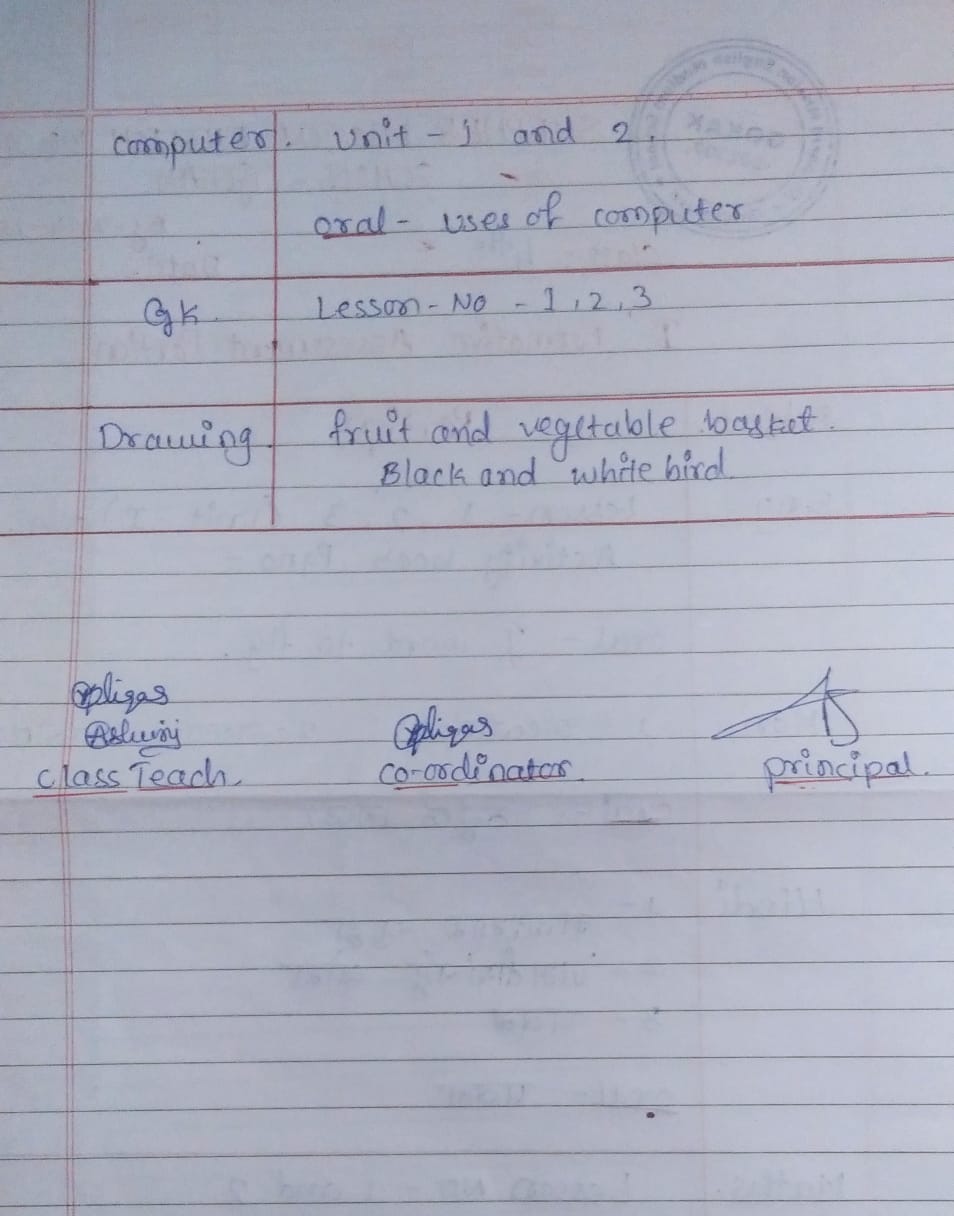 computer. Unit - 1 and 2.
oral - uses of computer
Gk. Lesson - No - 1, 2, 3
Drawing. fruit and vegetable basket.
Black and white bird.
class Teach. co-ordinator. principal.